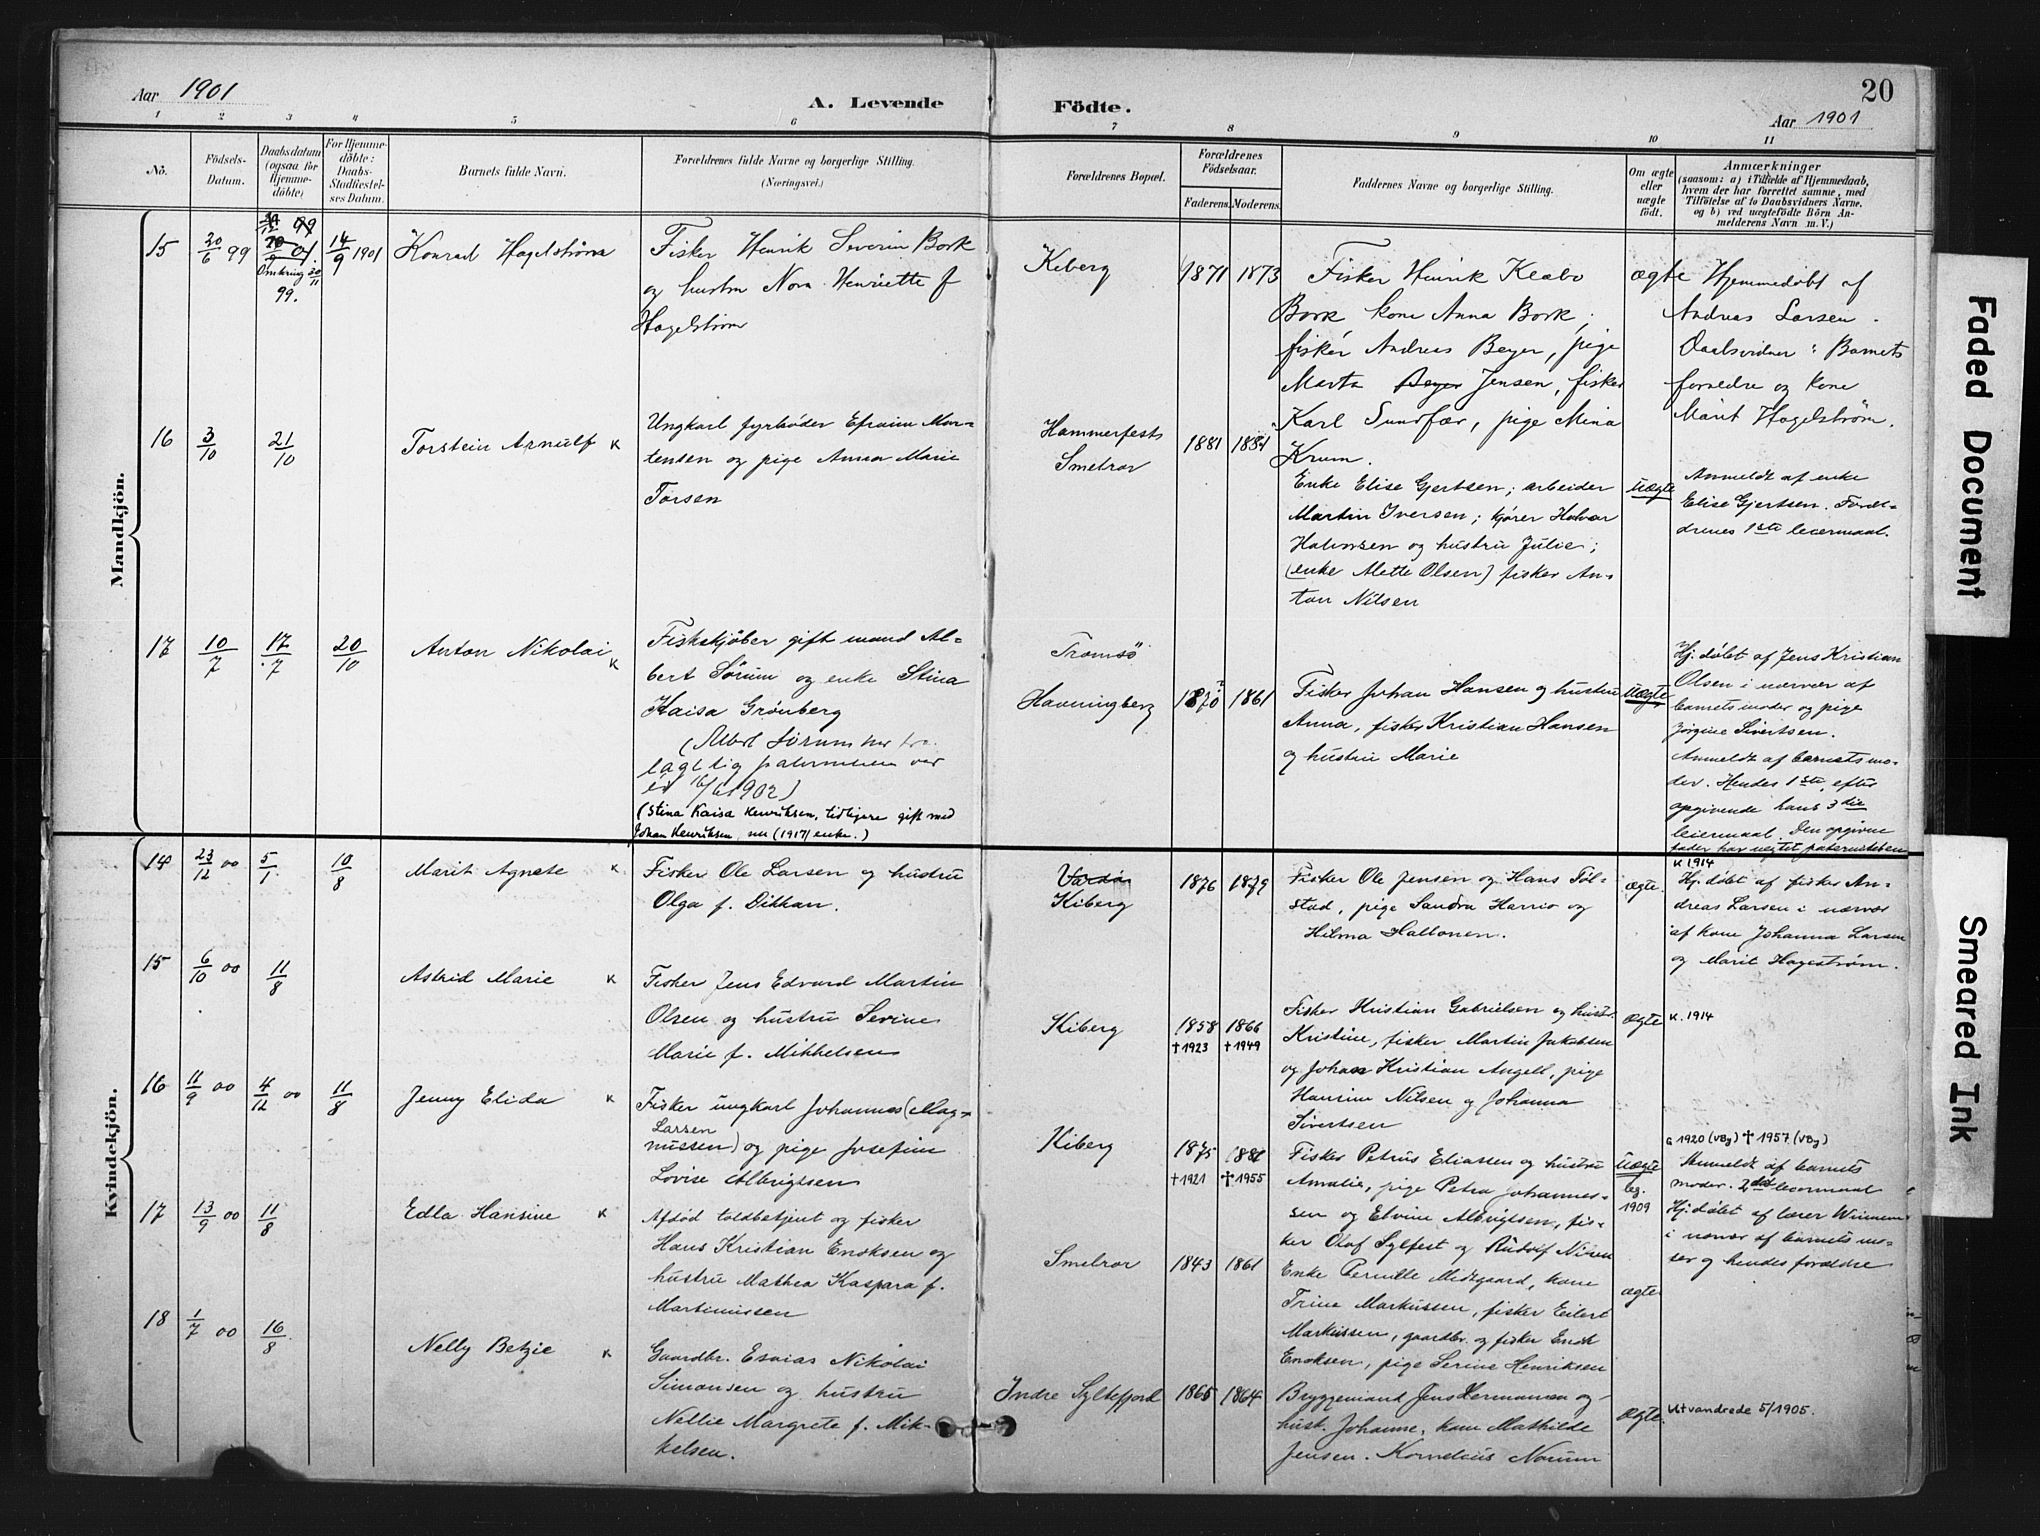 Aar 1901
A. Levende
Födte.
20
Aar 1901
1 2 3 4 5 6 7 8 9 10 11
No.
Födsels-
Datum.
Daabsdatum
(ogsaa for
Hjemme-
döbte)
For Hjemme-
döbte:
Daabs-
Stadfæstel-
ses Datum.
Barnets fulde Navn.
Forældrenes fulde Navne og borgerlige Stilling.
(Næringsvei.)
Forældrenes Bopæl.
Forældrenes
Födselsaar.
Faderens. Moderens.
Faddernes Navne og borgerlige Stilling.
Om ægte
eller
uægte
födt.
Anmærkninger
(saasom: a) i Tilfælde af Hjemmedaab,
hvem der har forrettet samme, med
Tilföielse af to Daabsvidners Navne.
og b) ved uægtefödte Börn An-
melderens Navn m. V.)
Mandkjön.
15
20/6 99
Omkring 20/11
99.
14/9 1901
Konrad Hagelstrøm
Fisker Henrik Severin Bork
og hustru Nora Henriette f
Hagelstrøm
Kiberg
1871 1873
Fisker Henrik Klabo
Bork kone Anna Bork;
fisker Andreas Beyer, pige
Marta Beyer Jensen, fisker
Karl Sundfær, pige Mina
Krum.
ægte
Hjemmedøbt af
Andreas Larsen.
Daabsvidner: Barnets
forældre og kone
Marit Hagelstrøm.
16
3/10
21/10
Torstein Arnulf K
Ungkarl fyrbøder Efraim Mor-
tensen og pige Anna Marie
Torsen
Hammerfest
Smelror
1881 1884
Enke Elise Gjertsen; arbeider
Martin Iversen; kjører Halvar
Halvorsen og hustru Julie;
(enke Mette Olsen) fisker An-
ton Nilsen
uægte
Anmeldt af enke
Elise Gjertsen. Foræl-
drenes 1ste leiermaal.
17
10/7
17/7
20/10
Anton Nikolai K
Fiskekjøber gift mand Al-
bert Sørum og enke Stina
Kaisa Grønberg
(Albert Sørum har fra-
lagt sig paterniteten ved
ed 16/6 1902)
(Stina Kaisa Henriksen, tidligere gift med
Johan Henriksen, nu (1917) enke.)
Tromsö
Havningberg
1870? 1861
Fisker Johan Hansen og hustru
Anna, fisker Kristian Hansen
og hustru Marie
uægte
Hj. døbt af Jens Kristian
Olsen i nærvær af
barnets moder og pige
Jørgine Sivertsen.
Anmeldt af barnets mo-
der. Hendes 1ste, efter
opgivende hans 3die
leiermaal. Den opgivne
fader har negtet paterniteten
Kvindekjön.
14
23/12 00
5/1
10/8
Marit Agnete K
Fisker Ole Larsen og hustru
Olga f. Dikkan.
Vardø
Kiberg
1876 1879
Fisker Ole Jensen og Hans Tøl-
stad, pige Sandra Harrio og
Hilma Hallonen.
ægte.
K 1914
Hj. døbt af fisker An-
dreas Larsen i nærvær
af kone Johanna Larsen
og Marit Hagestrøm.
15
6/10 00
11/8
Astrid Marie K
Fisker Jens Edvard Martin
Olsen og hustru Sevine
Marie f. Mikkelsen
Kiberg
1858 1866
†1923 †1949
Fisker Kristian Gabrielsen og hustr.
Kristine, fisker Martin Jakobsen
og Johan Kristian Angell, pige
Hansine Nilsen og Johanna
Sivertsen
ægte
K. 1914
16
11/9 00
4/12 00
11/8
Jenny Elida K
Fisker ungkarl Johannes (Mag-
Larsen
nussen) og pige Josefine
Lovise Albrigtsen
Kiberg
1875 1881
†1921 †1955
Fisker Petrus Eliassen og hustru
Amalie, pige Petra Johannes-
sen og Elvine Albrigtsen, fis-
ker Olaf Sylfest og Rudolf Nilsen
uægte
leg.
1909
G 1920 (VBy) † 1957 (VBy)
Anmeldt af barnets
moder. 2det leiermaal
Hj. døbt af lærer
i nærvær af barnets mo-
der og hendes forældre
17
13/9 00
11/8
Edla Hansine K
Afdød toldbetjent og fisker
Hans Kristian Enoksen og
hustru Mathea Kaspara f.
Martinussen
Smelror
1843 1861
Enke Pernille Midtgaard, kone
Trine Markussen, fisker Eilert
Markussen, gaardbr. og fisker Enok
Enoksen, pige Serine Henriksen
ægte
18
1/7 00
16/8
Nelly Betzie K
Gaardbr. Esaias Nikolai
Simonsen og hustru
Nellie Margrete f. Mik-
kelsen.
Indre Syltefjord
1865 1864
Bryggemand Jens Hermansen og
hust. Johanne, kone Mathilde
Jensen. Kornelius Norum
ægte.
Utvandrede 5/1905.
Faded Document
Smeared Ink